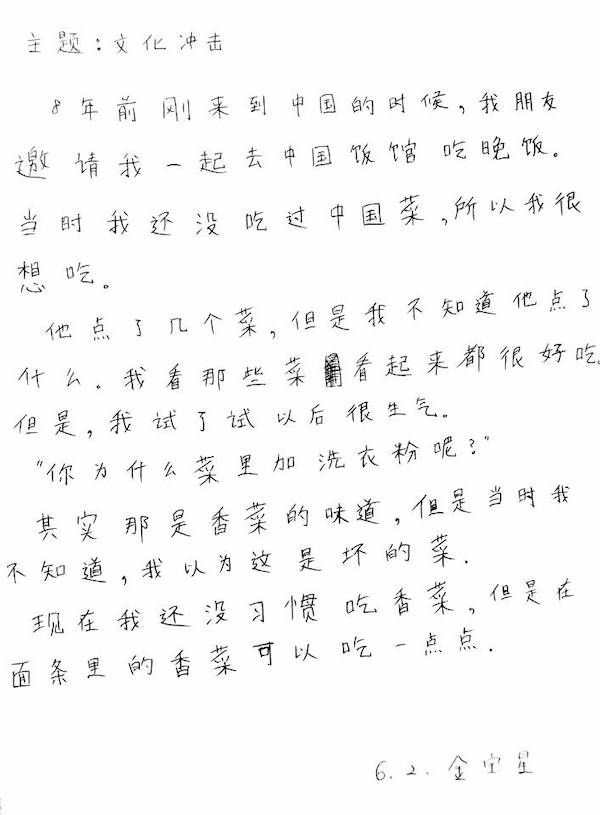 主题：文化冲击
8年前刚来到中国的时候，我朋友
邀请我一起去中国饭馆吃晚饭。
当时我还没吃过中国菜，所以我很
想吃。
他点了几个菜，但是我不知道他点了
什么。我看那些菜看起来都很好吃。
但是，我试了试以后很生气。
"你为什么菜里加洗衣粉呢？"
其实那是香菜的味道，但是当时我
不知道，我以为这是坏的菜.
现在我还没习惯吃香菜，但是在
面条里的香菜可以吃一点点.
6.2.金宝星